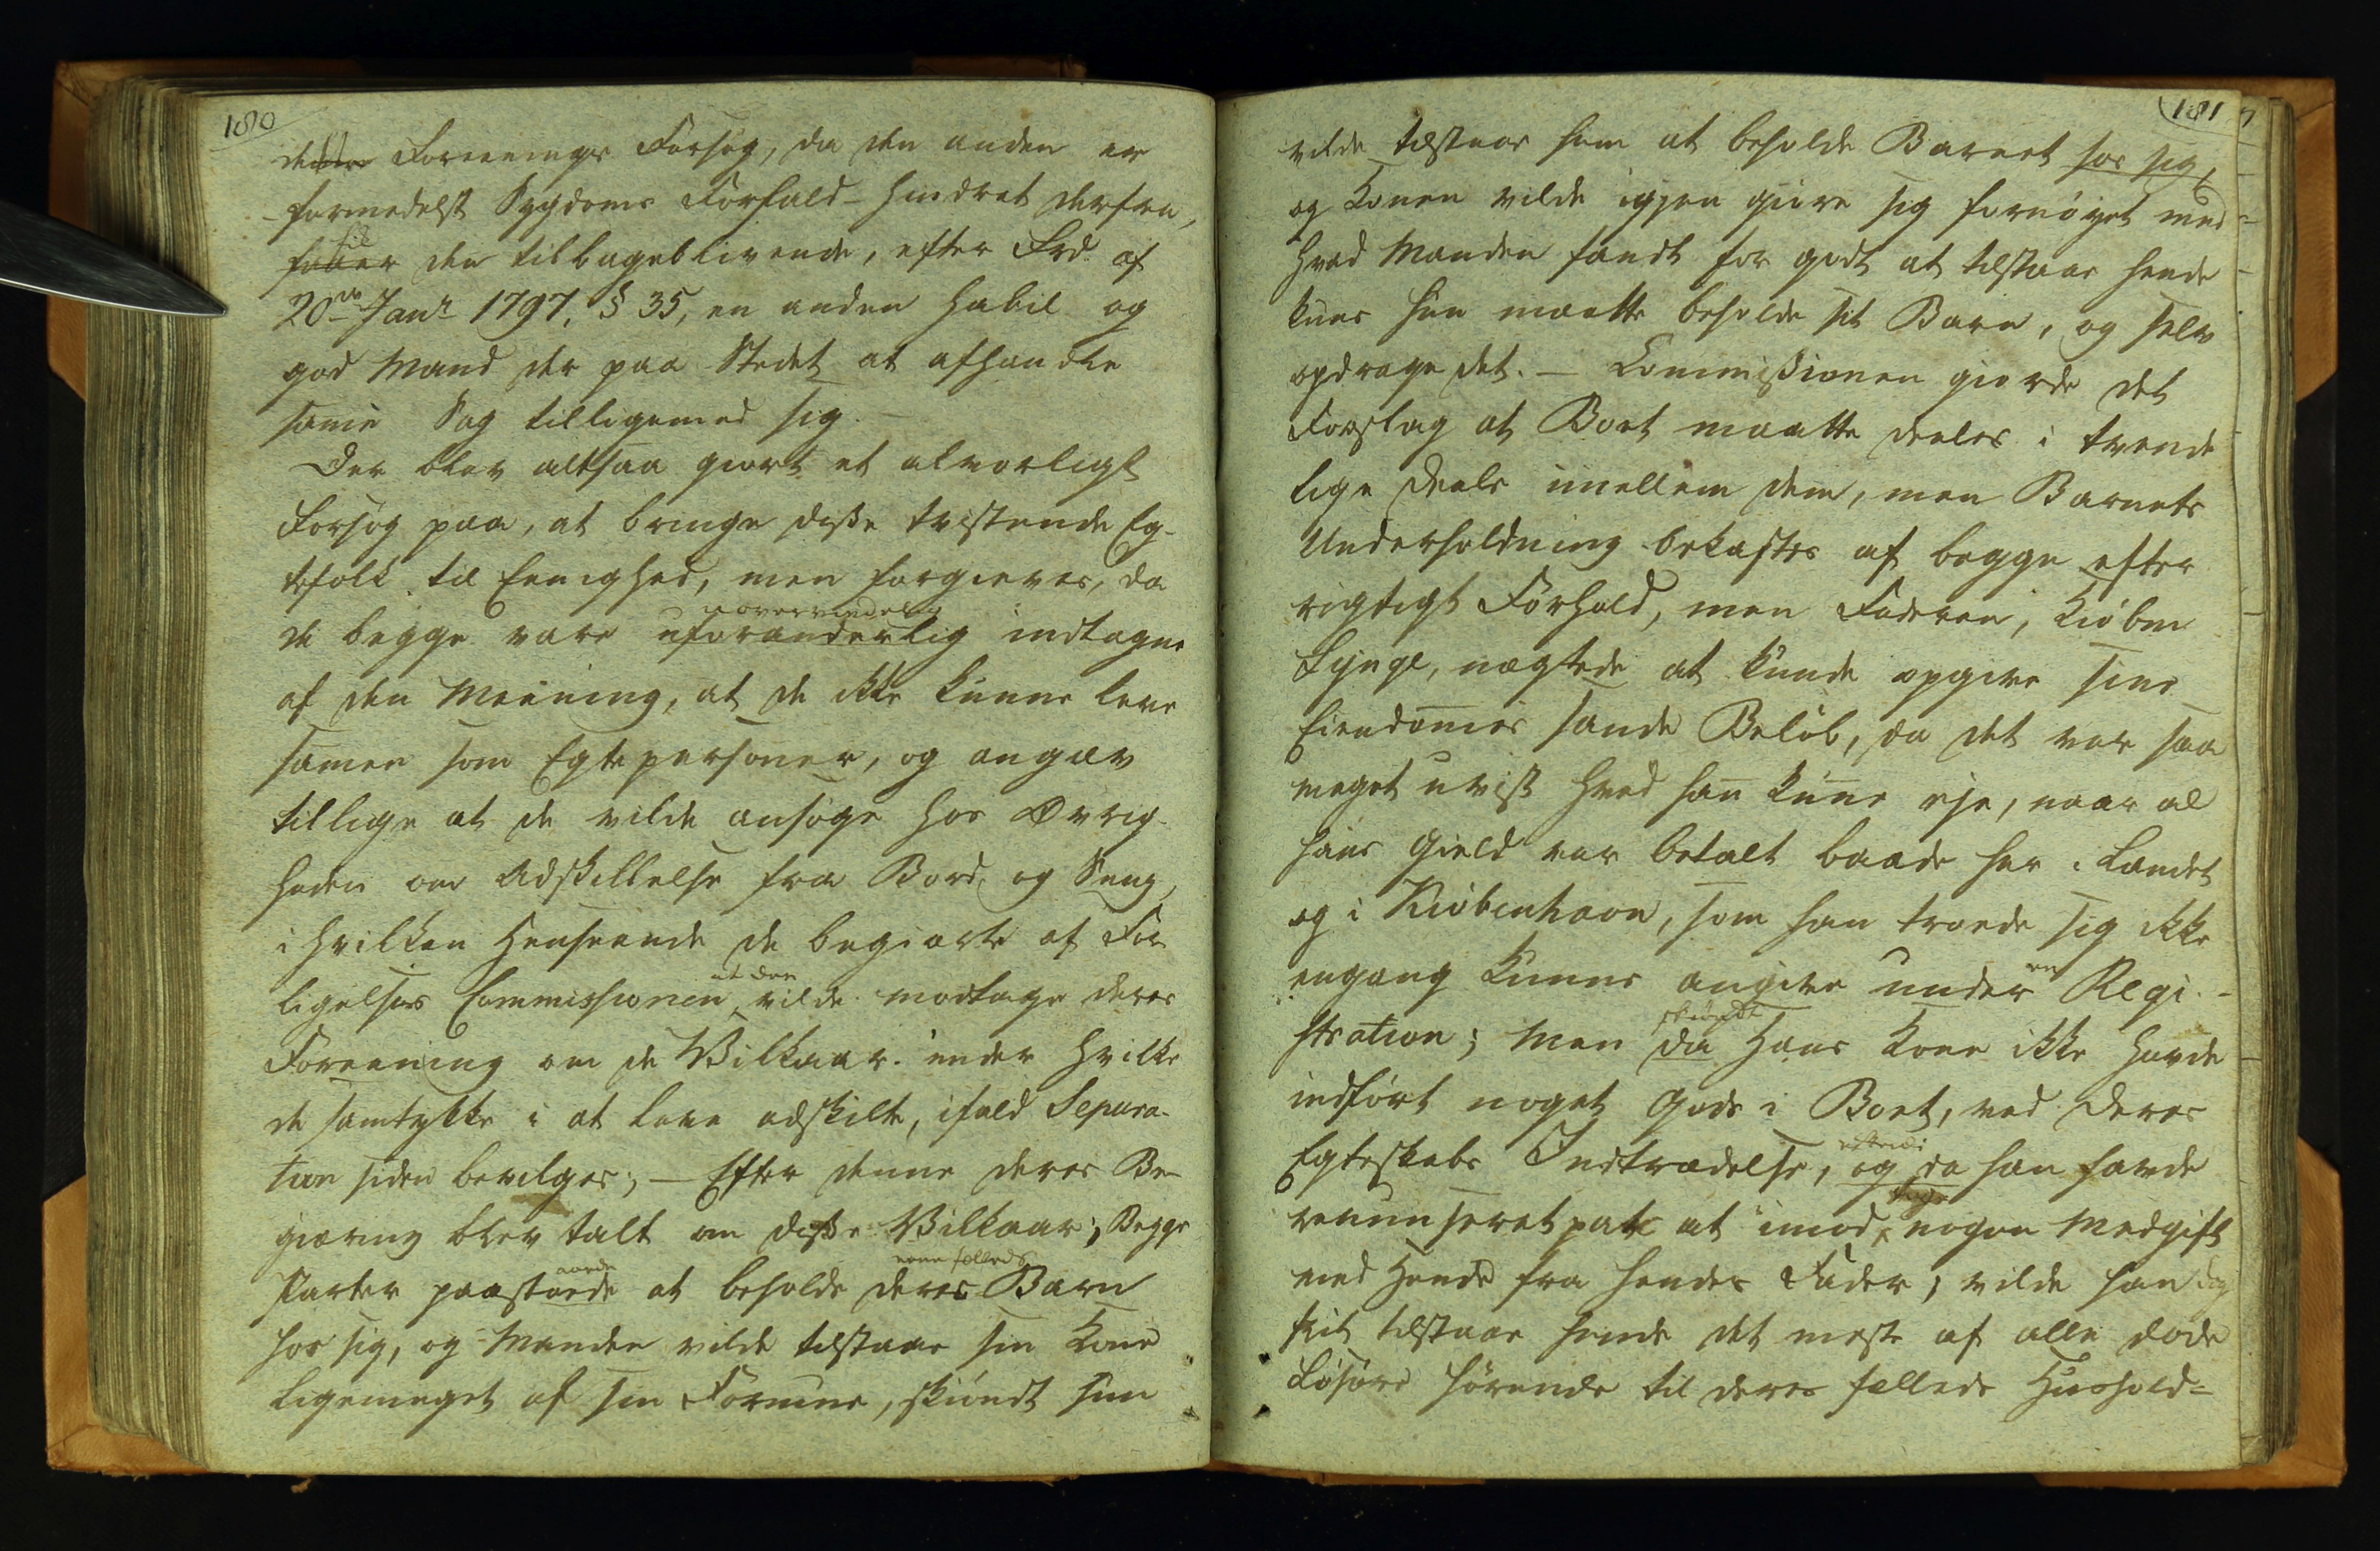 180
dette Foreenings Forsøg, da den anden er
formedelst Sygdoms Forfald hindret derfra,
fik
faaer den tilbageblivende, efter Frd. af
20de Janr 1797, § 35, en anden habil og
god Mand der paa Stedet at afhandle
samme Sag tilligemed sig. –
Der blev altsaa giort et alvorligt
Forsøg paa, at bringe disse tvistende Eg-
tefolk til Eenighed, men forgieves, da
uovervindelig
de begge vare uforanderlig indtagne
af den Meening, at de ikke kunne leve
samen som Egtepersoner, og angav
tillige at de vilde ansøge hos Øvrig-
heden om Adskillelse fra Bord og Seng,
i hvilken Henseende de begiærte af For-
at den
ligelses Commissionen vilde modtage deres
Foreening om de Vilkaar under hvilke
de samtykke i at leve adskilte, ifald Separa-
tion siden bevilges; – Efter denne deres Be-
giæring blev talt om disse Vilkaar; Begge
Parter paastoede at beholde deres Barn
hos sig, og Manden vilde tilstaae sin Kone
ligemeget af sin Formue, skiøndt hun
181
vilde tilstaae ham at beholde Barnet hos sig,
og Konen vilde igjen giøre sig fornøyet med
hvad Manden fandt for godt at tilstaae hende
kuns hun maatte beholde sit Barn, og selv
opdrage det. – Commissionen giorde det
Forslag at Boet maatte deeles i tvende
lige Deele imellem dem, men Barnets
Underholdning bekostes af begge efter
rigtigt Forhold, men Faderen, Kiøbm.
Lynge, nægtede at kunde opgive sine
Eiendommes sande Beløb, da det var saa
meget uvist hvad han kunne eje, naar al
hans Gield var betalt baade her i Landet
og i Kiöbenhavn, som han troede sig ikke
en
engang kunne angive under Regi-
skiöndt
stration; Men da Hans Kone ikke havde
indført noget Gods i Boet, ved deres
Egteskabs Indtrædelse, og da han havde
renunseret paa at imod nogen Medgift
med Hende fra hendes Fader, vilde han dog
frit tilstaae hende det meste af alle døde
Løsøre hørende til deres fælleds Hushold=